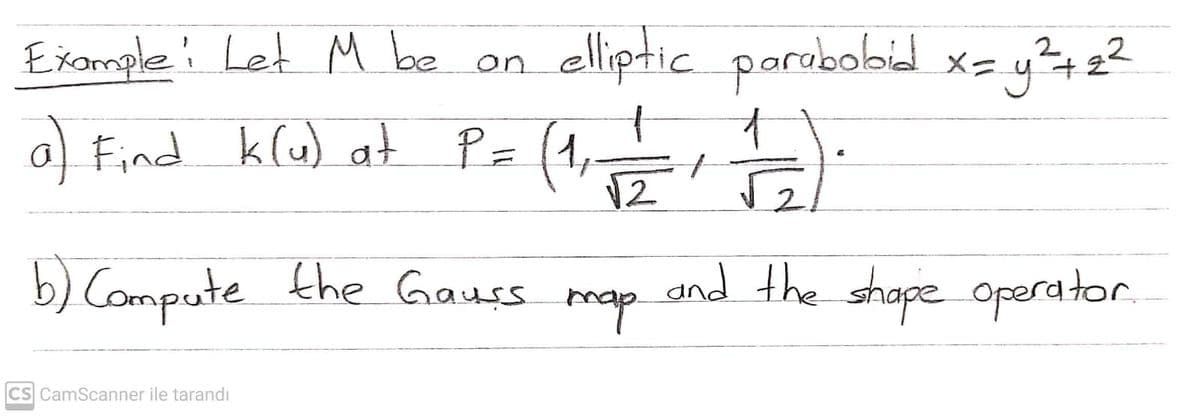 Example: Let M be an elliptic paraboloid x = y²+z²
a) Find k(u) at P = (1, 1/√2, 1/√2).
b) Compute the Gauss map and the shape operator.
CS CamScanner ile tarandı